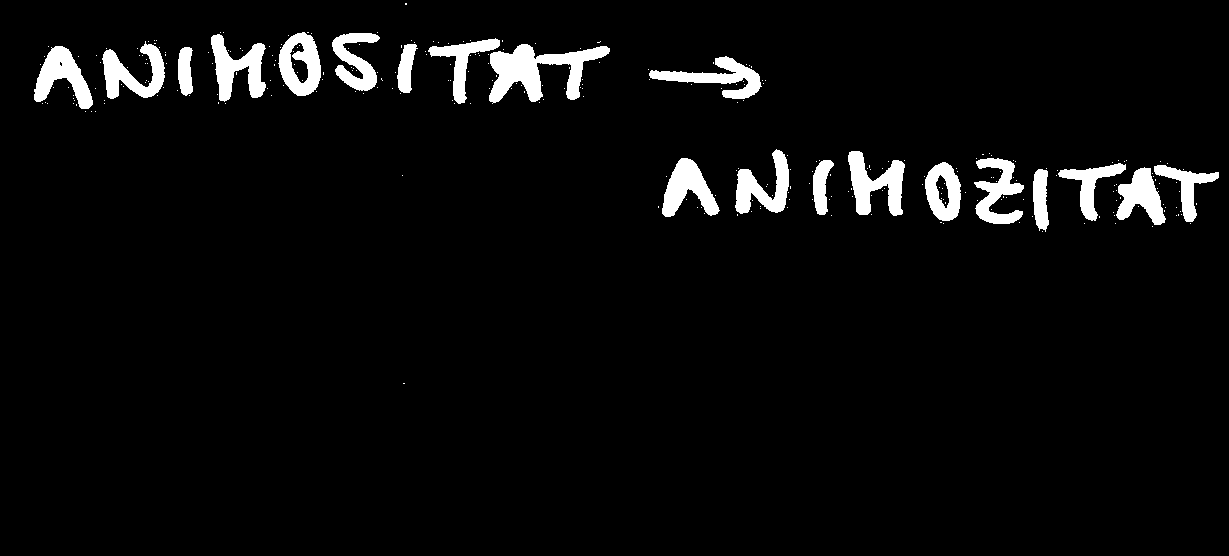 ANIMOSITAT →
ANIMOZITAT